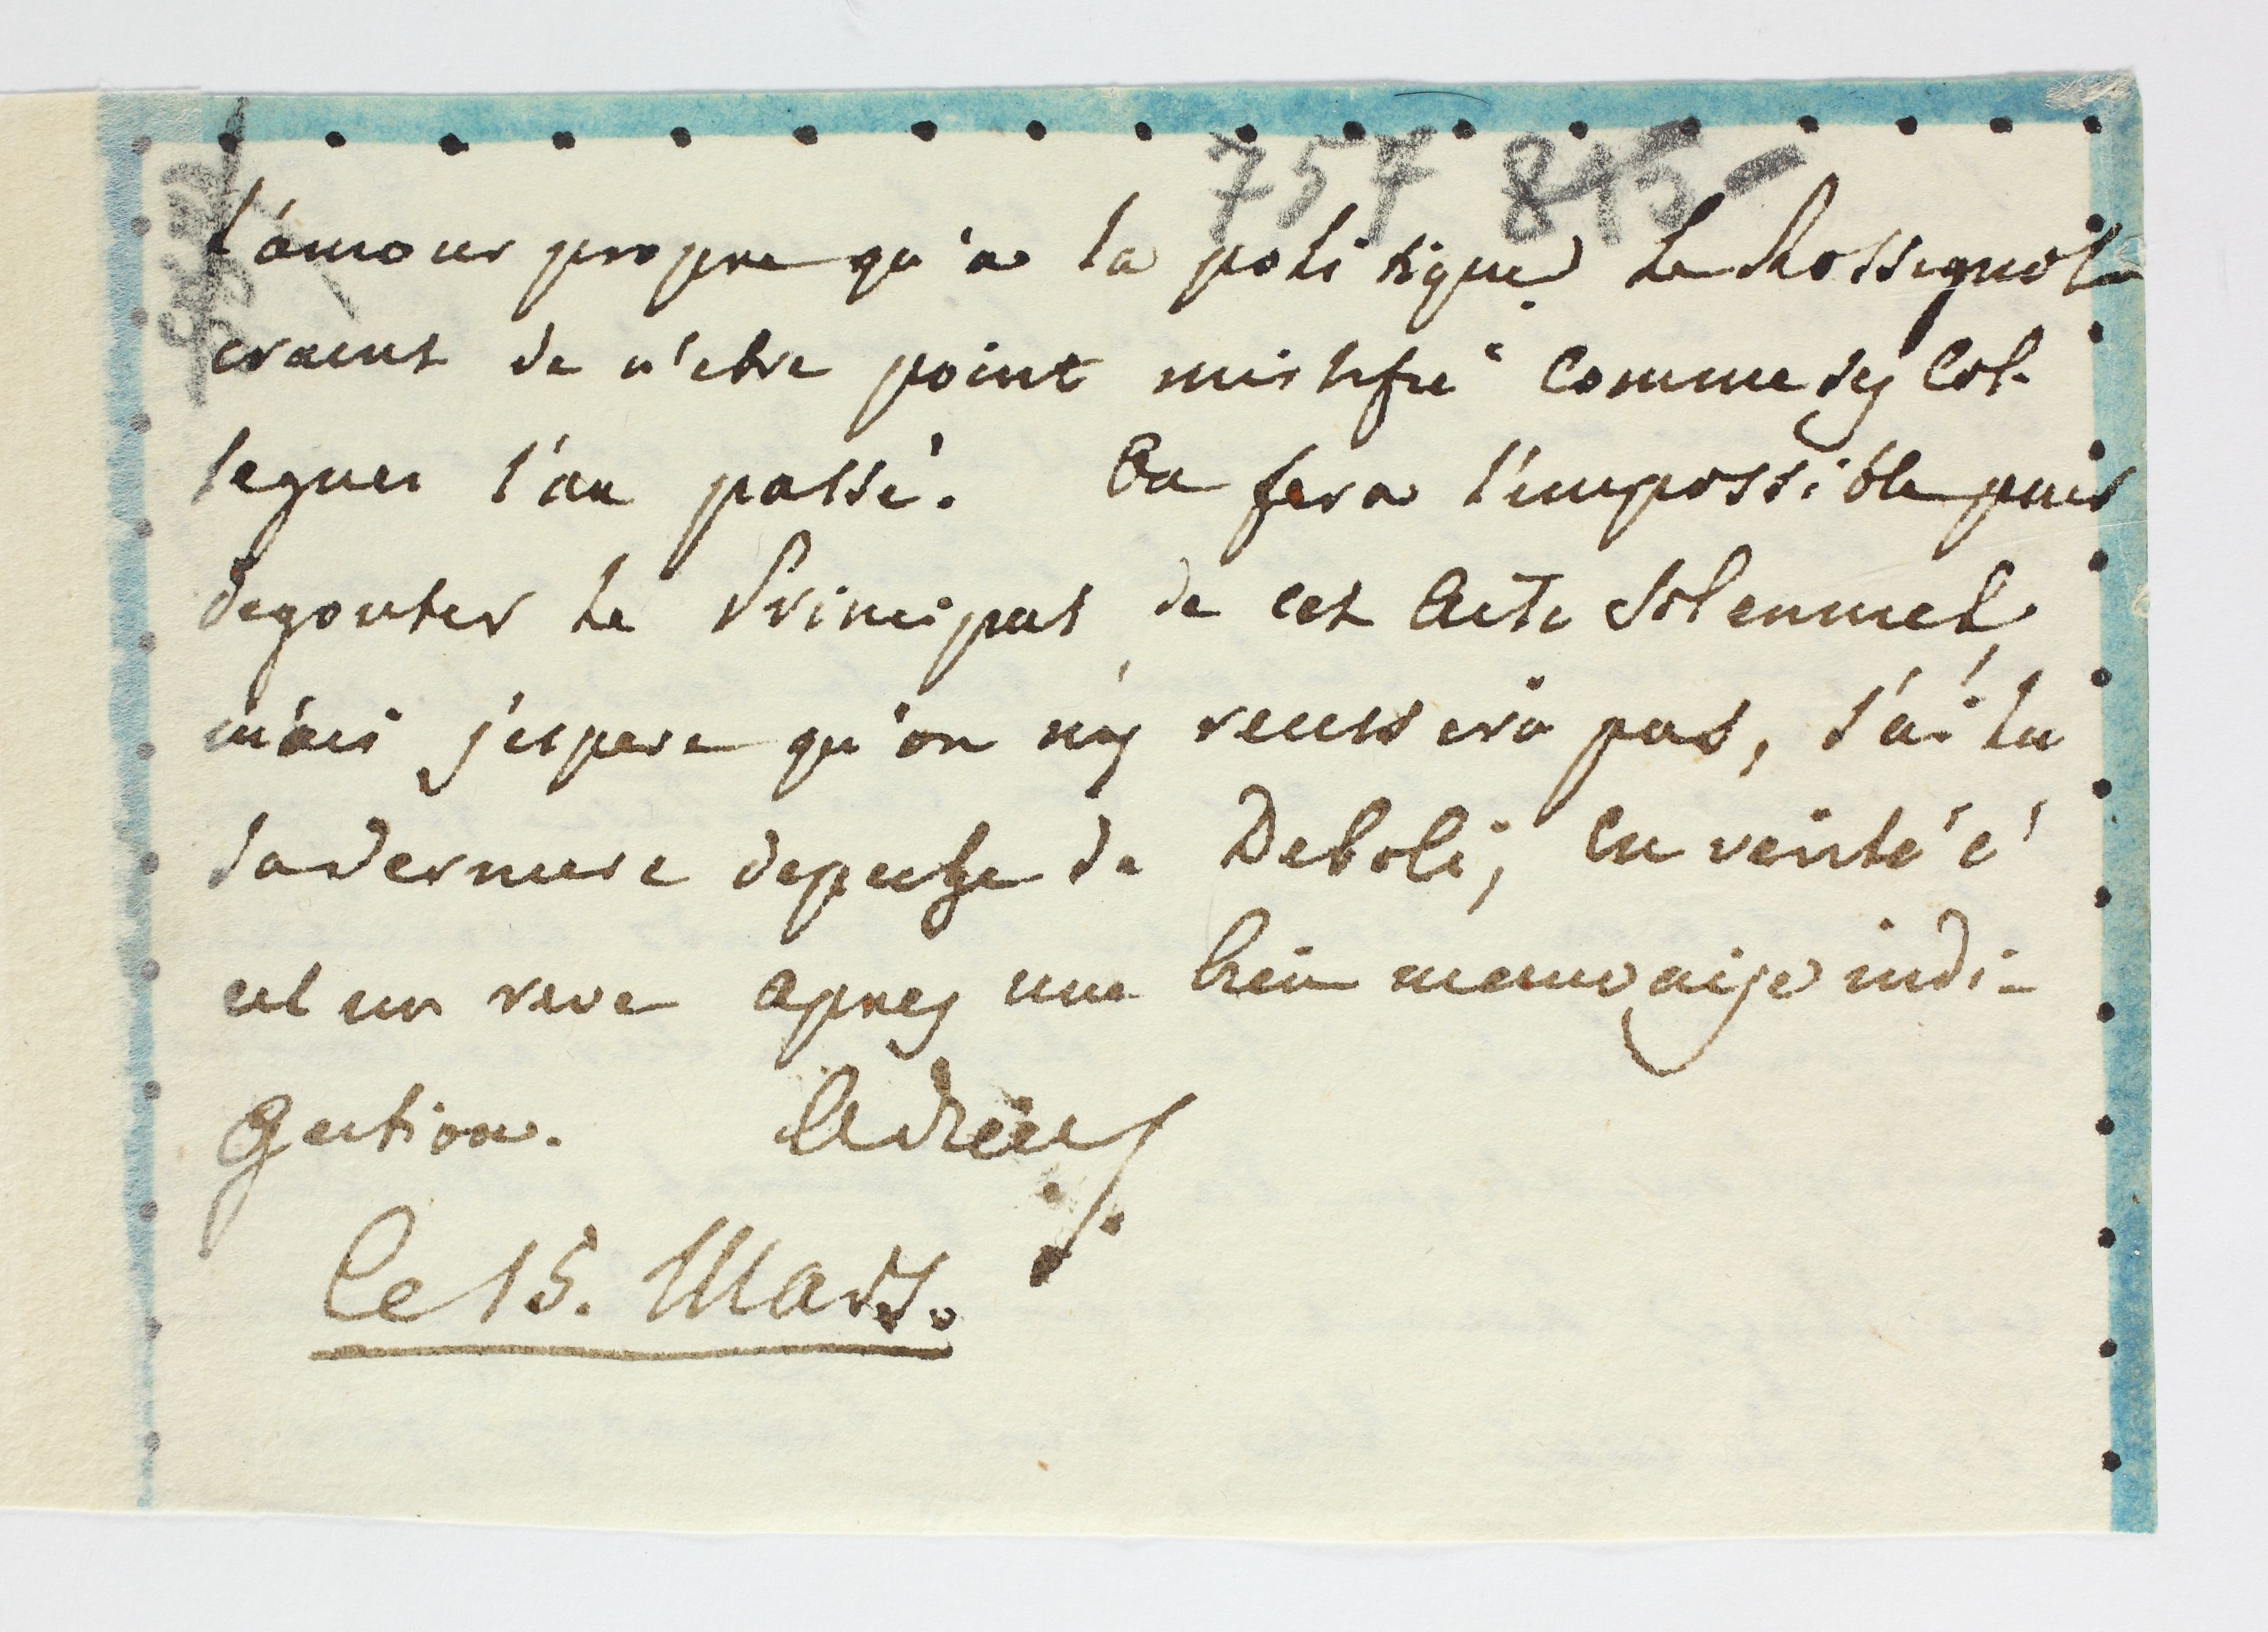 757 815-
l'amour propre qu'a la politique. Le Rossignol
craint de n'etre point mistifié comme ses Col-
legues l'an passé. On fera l'impossible puis
degouter le Principal de cet Acte Solennel,
mais j'espere qu'on n'y reussira pas, j'ai lu
la derniere depeche de Deboli, en verité c'
est un reve apres une bien mauvaise indi-
gestion. Adieu
Le 15. Mars.